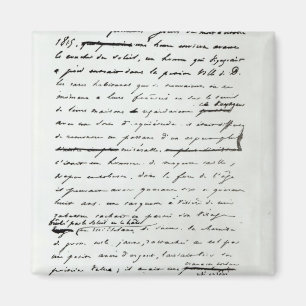 premiers jours du mois d'octobre
1815, une heure environ avant
le coucher du soleil, un homme qui voyageait
à pied entrait dans la petite ville de D.
Les rares habitants qui se trouvaient en ce
moment à leurs fenêtres ou sur le seuil
ce voyageur
de leurs maisons regardaient
avec une sorte d'inquiétude. Il était difficile
de rencontrer un passant d'un aspect plus
misérable.
C'était un homme de moyenne taille,
trapu et robuste, dans la force de l'âge.
Il pouvait avoir quarante six ou quarante
huit ans. Une casquette à visière de cuir
rabattue cachait en partie son visage
brûlé par le soleil et le hâle
et ruisselant de sueur. Sa chemise
de grosse toile jaune, rattachée au col par
une petite ancre d'argent, laissait voir sa
poitrine velue; il avait une